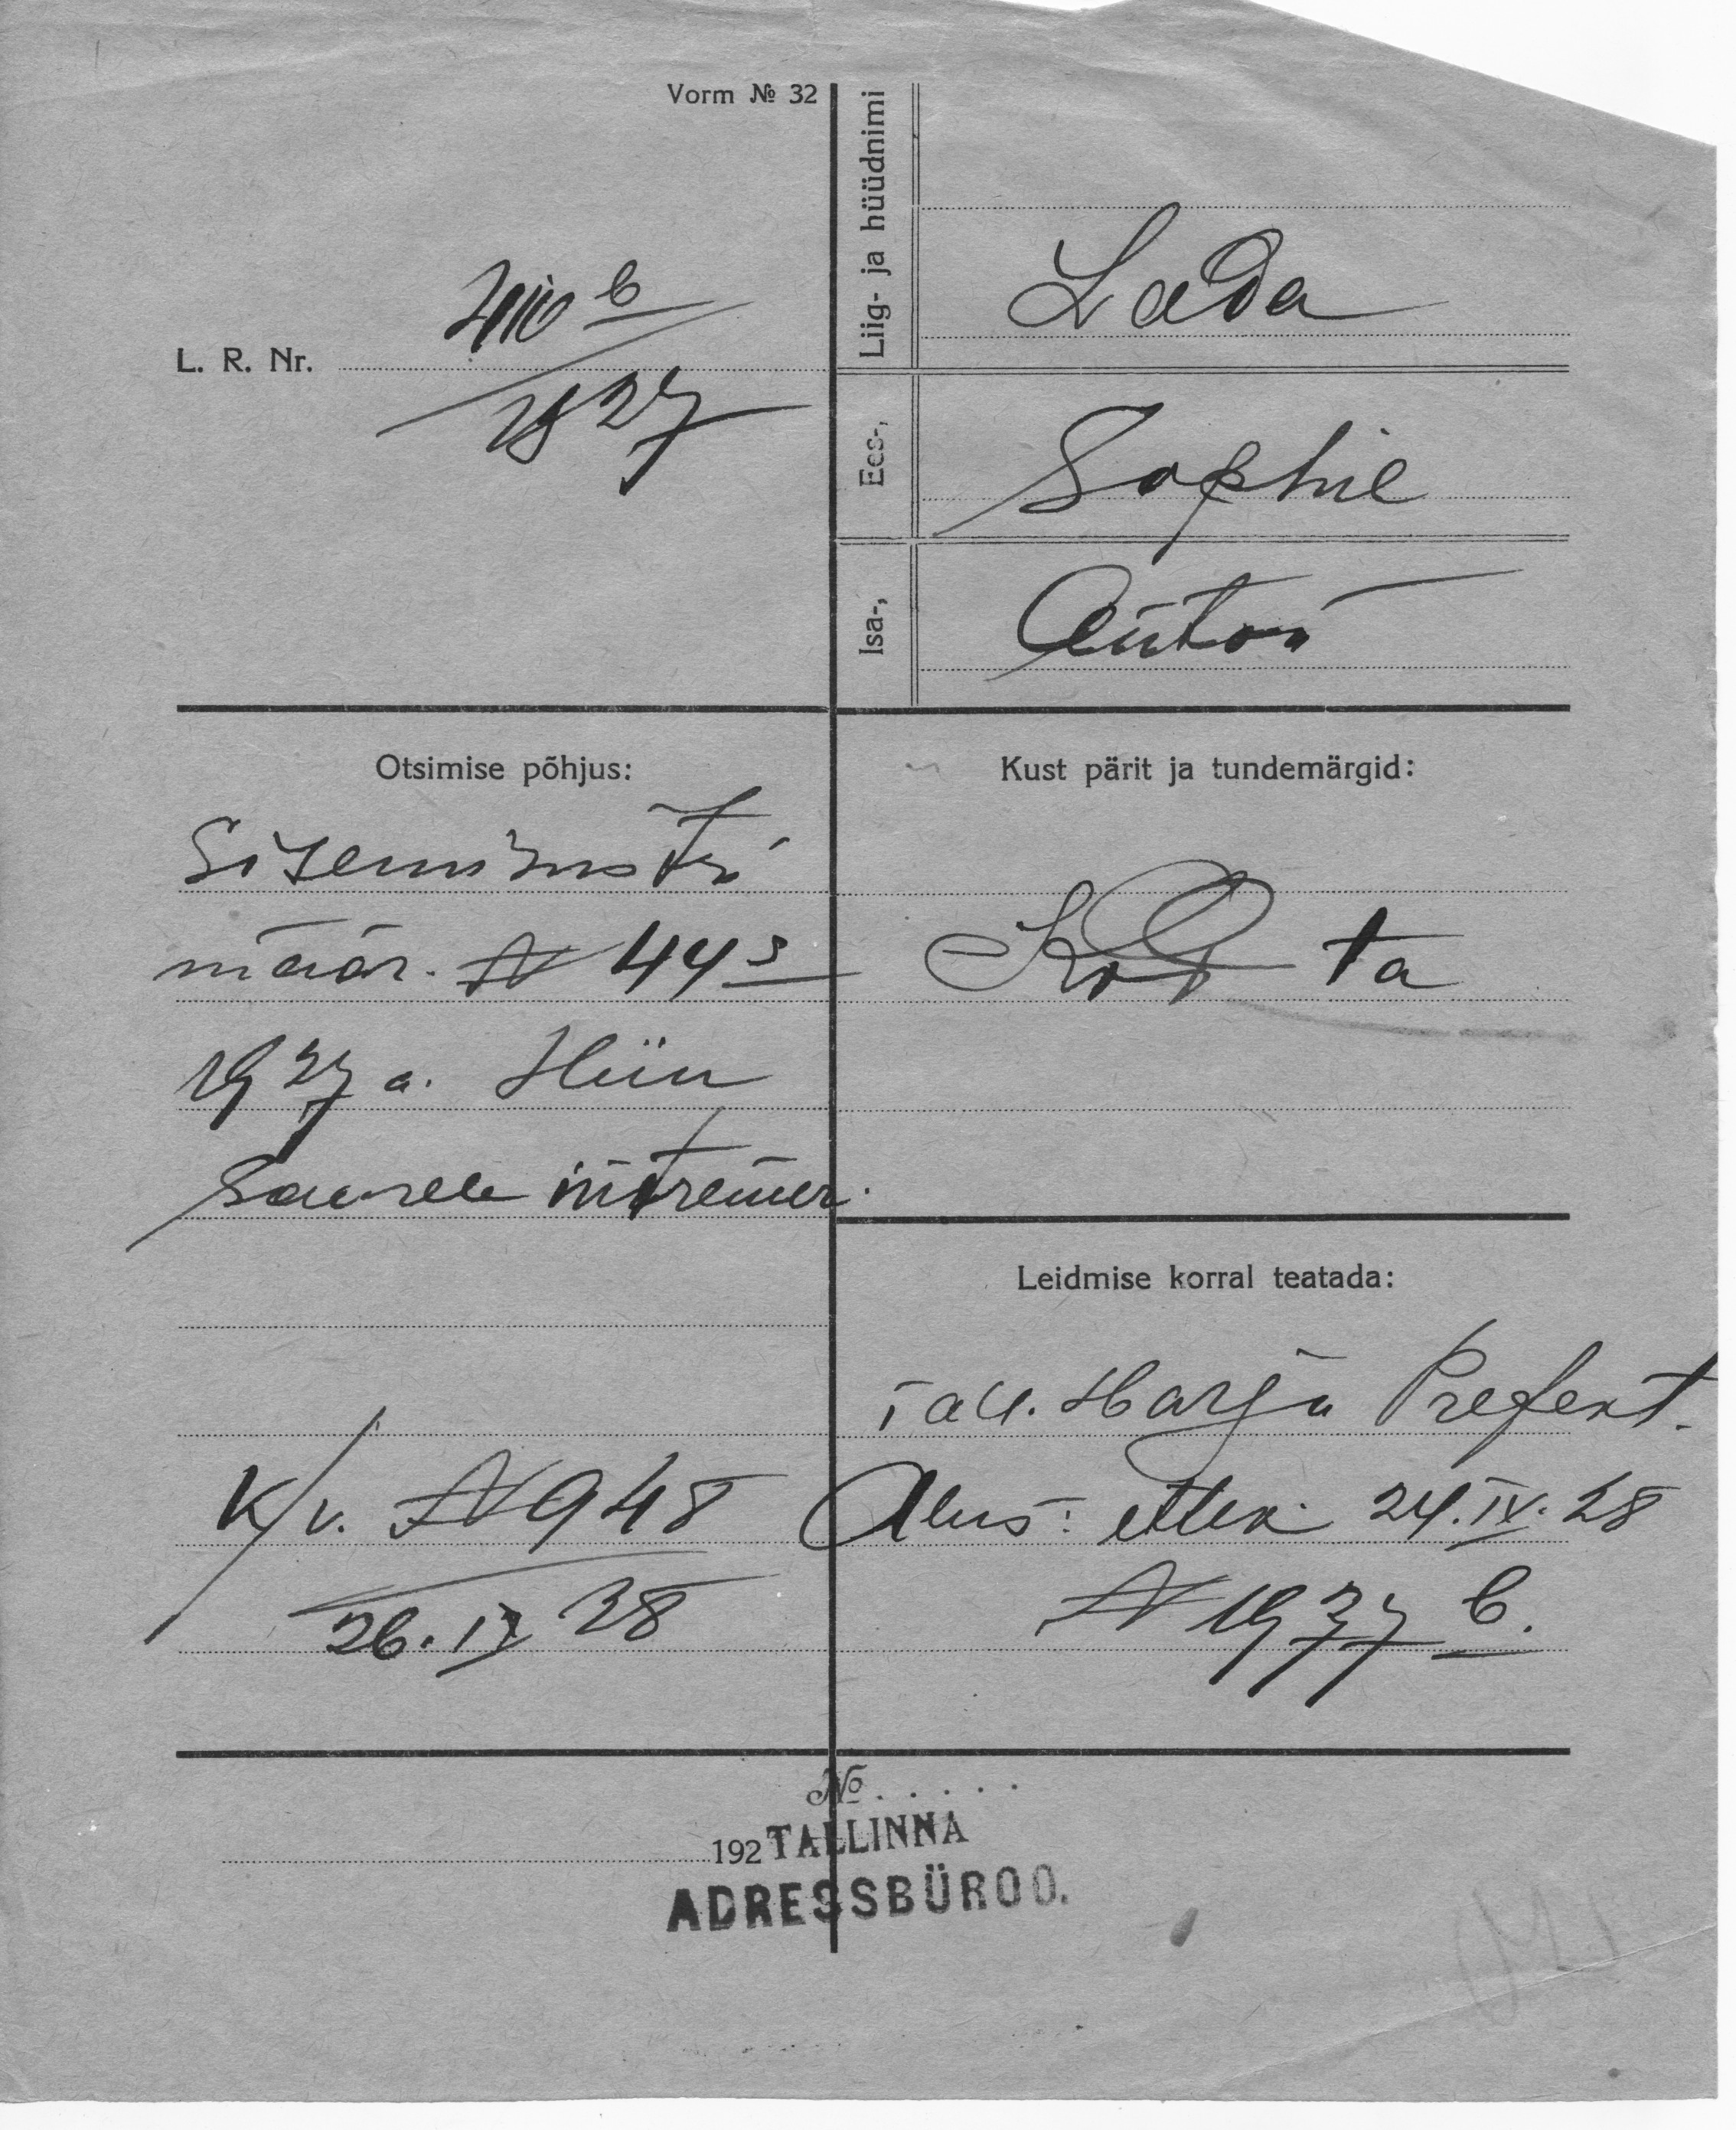 Vorm № 32
L. R. Nr.
1927
Liig- ja hüüdnimi
Lada
Ees-,
Sophie
Isa-,
Anton
Otsimise põhjus:
Siseministri
määr. N 44 s
1927 a. Hiiu
saarele interneer.
K/v. N 948
26. IV 28
Kust pärit ja tundemärgid:
Leidmise korral teatada:
Tall. Harju Prefekt.
Alus: ettek. 24. IV. 28
N 1977 b.
№ . . . . .
192
TALLINNA
ADRESSBÜROO.